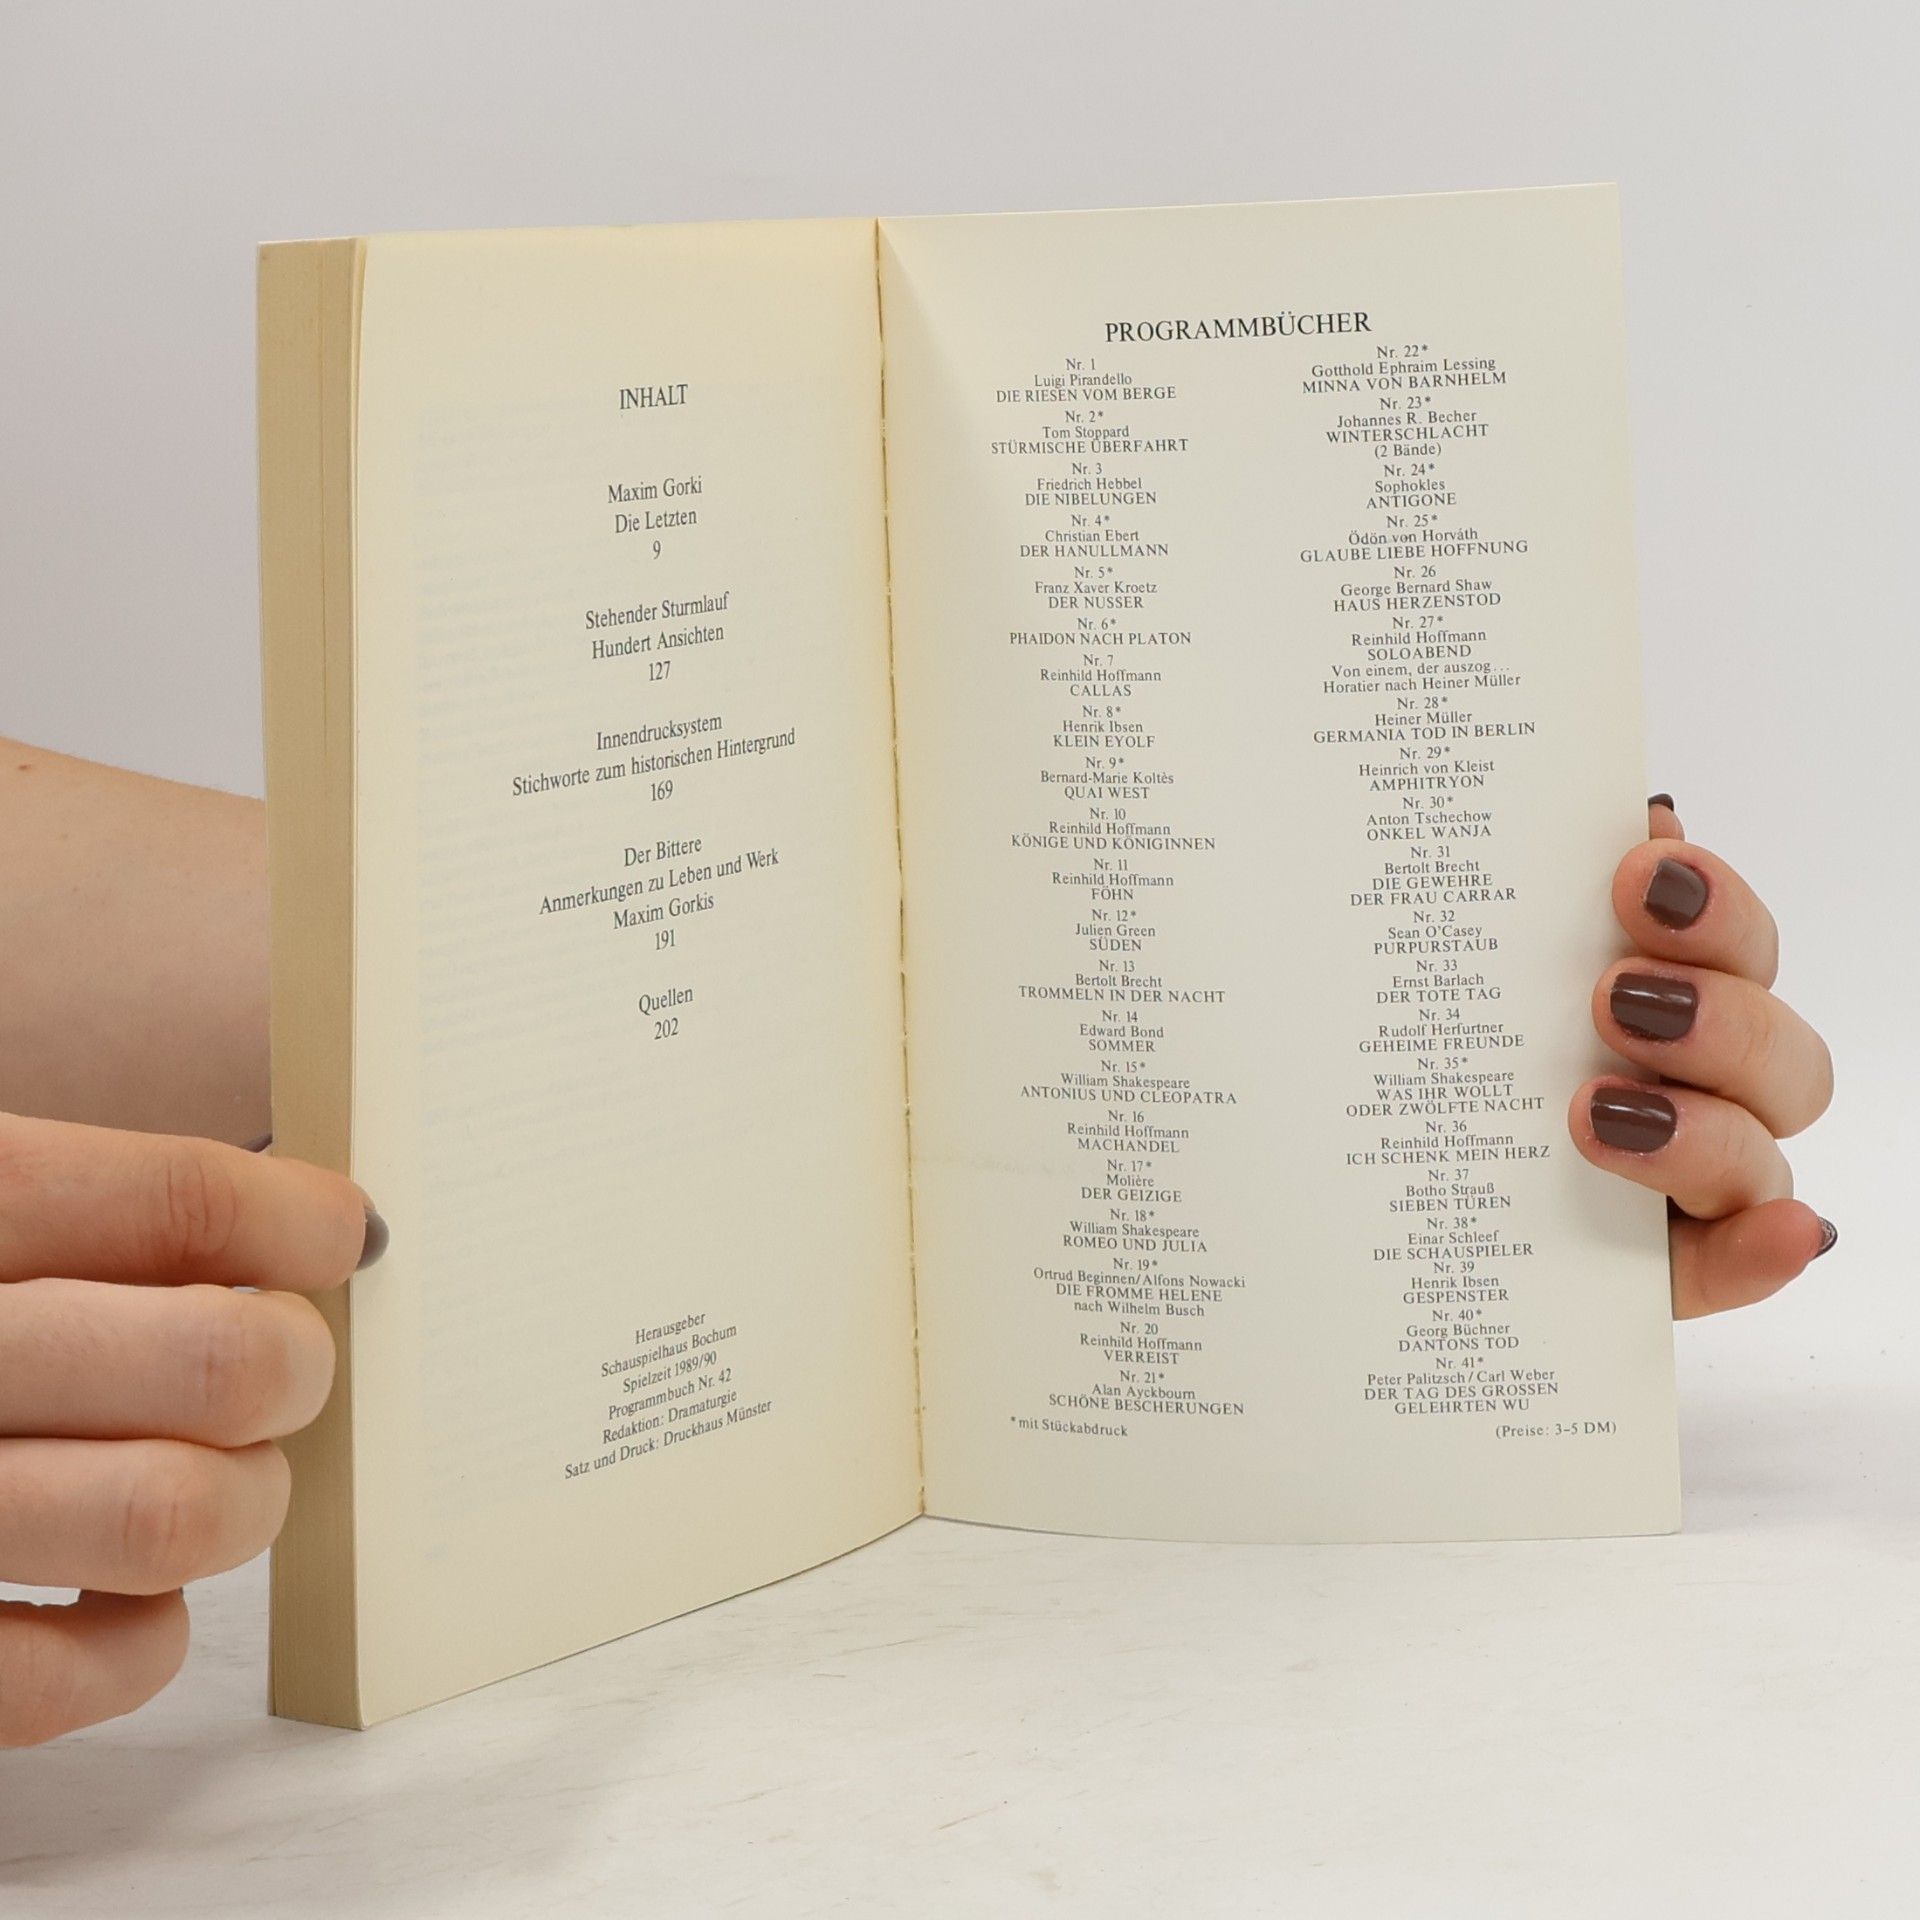 INHALT
Maxim Gorki
Die Letzten
9
Stehender Sturmlauf
Hundert Ansichten
127
Innendrucksystem
Stichworte zum historischen Hintergrund
169
Der Bittere
Anmerkungen zu Leben und Werk
Maxim Gorkis
191
Quellen
202
Herausgeber
Schauspielhaus Bochum
Spielzeit 1989/90
Programmbuch Nr. 42
Redaktion: Dramaturgie
Satz und Druck: Druckhaus Münster
PROGRAMMBÜCHER
Nr. 1
Luigi Pirandello
DIE RIESEN VOM BERGE
Nr. 2*
Tom Stoppard
STÜRMISCHE ÜBERFAHRT
Nr. 3
Friedrich Hebbel
DIE NIBELUNGEN
Nr. 4*
Christian Ebert
DER HANULLMANN
Nr. 5*
Franz Xaver Kroetz
DER NUSSER
Nr. 6*
PHAIDON NACH PLATON
Nr. 7
Reinhild Hoffmann
CALLAS
Nr. 8*
Henrik Ibsen
KLEIN EYOLF
Nr. 9*
Bernard-Marie Koltès
QUAI WEST
Nr. 10
Reinhild Hoffmann
KÖNIGE UND KÖNIGINNEN
Nr. 11
Reinhild Hoffmann
FÖHN
Nr. 12*
Julien Green
SÜDEN
Nr. 13
Bertolt Brecht
TROMMELN IN DER NACHT
Nr. 14
Edward Bond
SOMMER
Nr. 15*
William Shakespeare
ANTONIUS UND CLEOPATRA
Nr. 16
Reinhild Hoffmann
MACHANDEL
Nr. 17*
Molière
DER GEIZIGE
Nr. 18*
William Shakespeare
ROMEO UND JULIA
Nr. 19*
Ortrud Beginnen/Alfons Nowacki
DIE FROMME HELENE
nach Wilhelm Busch
Nr. 20
Reinhild Hoffmann
VERREIST
Nr. 21*
Alan Ayckbourn
SCHÖNE BESCHERUNGEN
*mit Stückabdruck
Nr. 22*
Gotthold Ephraim Lessing
MINNA VON BARNHELM
Nr. 23*
Johannes R. Becher
WINTERSCHLACHT
(2 Bände)
Nr. 24*
Sophokles
ANTIGONE
Nr. 25*
Ödön von Horváth
GLAUBE LIEBE HOFFNUNG
Nr. 26
George Bernard Shaw
HAUS HERZENSTOD
Nr. 27*
Reinhild Hoffmann
SOLOABEND
Von einem, der auszog...
Horatier nach Heiner Müller
Nr. 28*
Heiner Müller
GERMANIA TOD IN BERLIN
Nr. 29*
Heinrich von Kleist
AMPHITRYON
Nr. 30*
Anton Tschechow
ONKEL WANJA
Nr. 31
Bertolt Brecht
DIE GEWEHRE
DER FRAU CARRAR
Nr. 32
Sean O'Casey
PURPURSTAUB
Nr. 33
Ernst Barlach
DER TOTE TAG
Nr. 34
Rudolf Herfurtner
GEHEIME FREUNDE
Nr. 35*
William Shakespeare
WAS IHR WOLLT
ODER ZWÖLFTE NACHT
Nr. 36
Reinhild Hoffmann
ICH SCHENK MEIN HERZ
Nr. 37
Botho Strauß
SIEBEN TÜREN
Nr. 38*
Einar Schleef
DIE SCHAUSPIELER
Nr. 39
Henrik Ibsen
GESPENSTER
Nr. 40*
Georg Büchner
DANTONS TOD
Nr. 41*
Peter Palitzsch/Carl Weber
DER TAG DES GROSSEN
GELEHRTEN WU
(Preise: 3-5 DM)